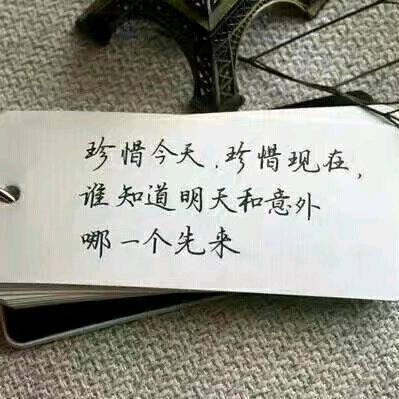 珍惜今天、珍惜现在，
谁知道明天和意外
哪一个先来